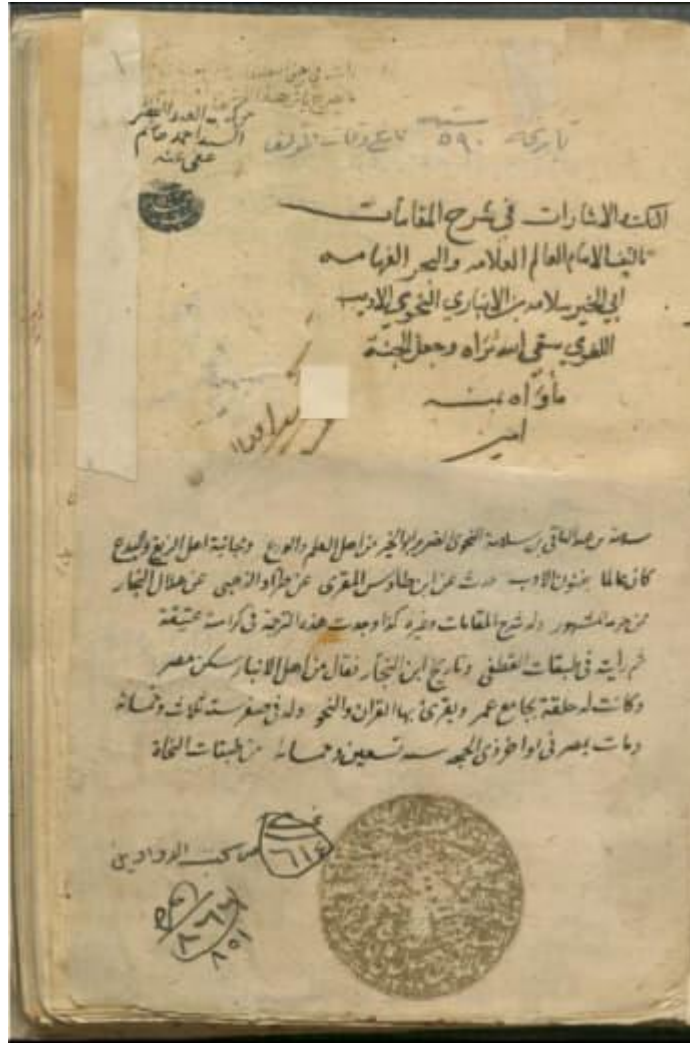 من كتب العبد الفقير
السيد احمد
عفى عنه
تاريخ سنة ٥٩٠ تاريخ وفات المؤلف
النكت والاشارات في شرح المقامات
تاليف الامام العالم العلامه والبحر الفهامه
ابي الخير سلامه بن الانباري النحوي الاديب
اللغوي سقى الله ثراه وجعل الجنة
مأواه بمنه
امين
سلامة بن عبد الباقي بن سلامة النحوى الضرير ابو الخير من اهل العلم والورع ومجانبة اهل الزيغ والبدع
كان عالما بفنون الادب حدث عن ابن طاوس المقرى عن طراد الزينبى عن هلال الحفار
من جزءه المشهور وله شرح المقامات وغيره كذا وجدت هذه الترجمة فى كراسة عتيقة
ثم رأيته فى طبقات القفطى وتاريخ ابن النجار فقال من اهل الانبار سكن مصر
وكانت له حلقة بجامع عمر ويقرئ بها القران والنحو ولد فى صفر سنة ثلاث وخمسمائة
ومات بمصر فى اواخر ذى الحجه سنه تسعين وخمسمائة من طبقات النحاة
من كتب
٦١٤
٨٥١